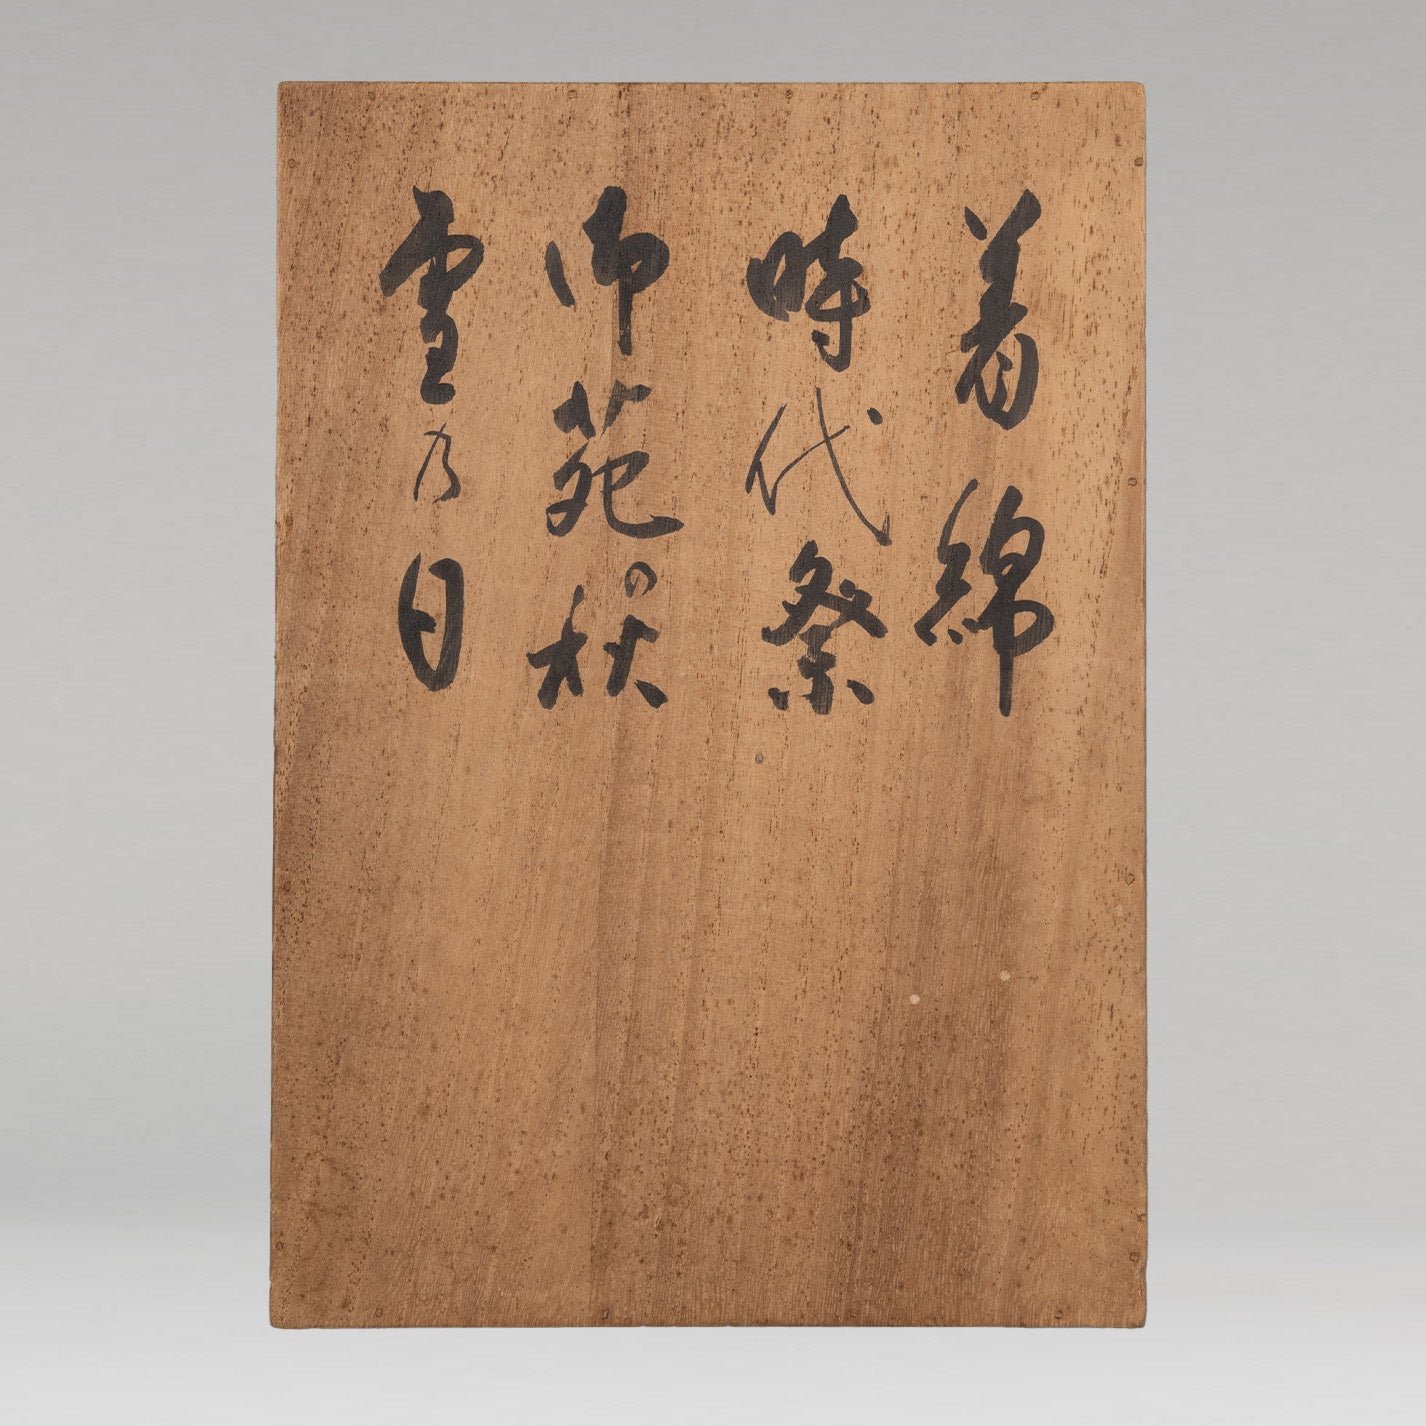 着綿
時代祭
御苑の秋
雪乃日